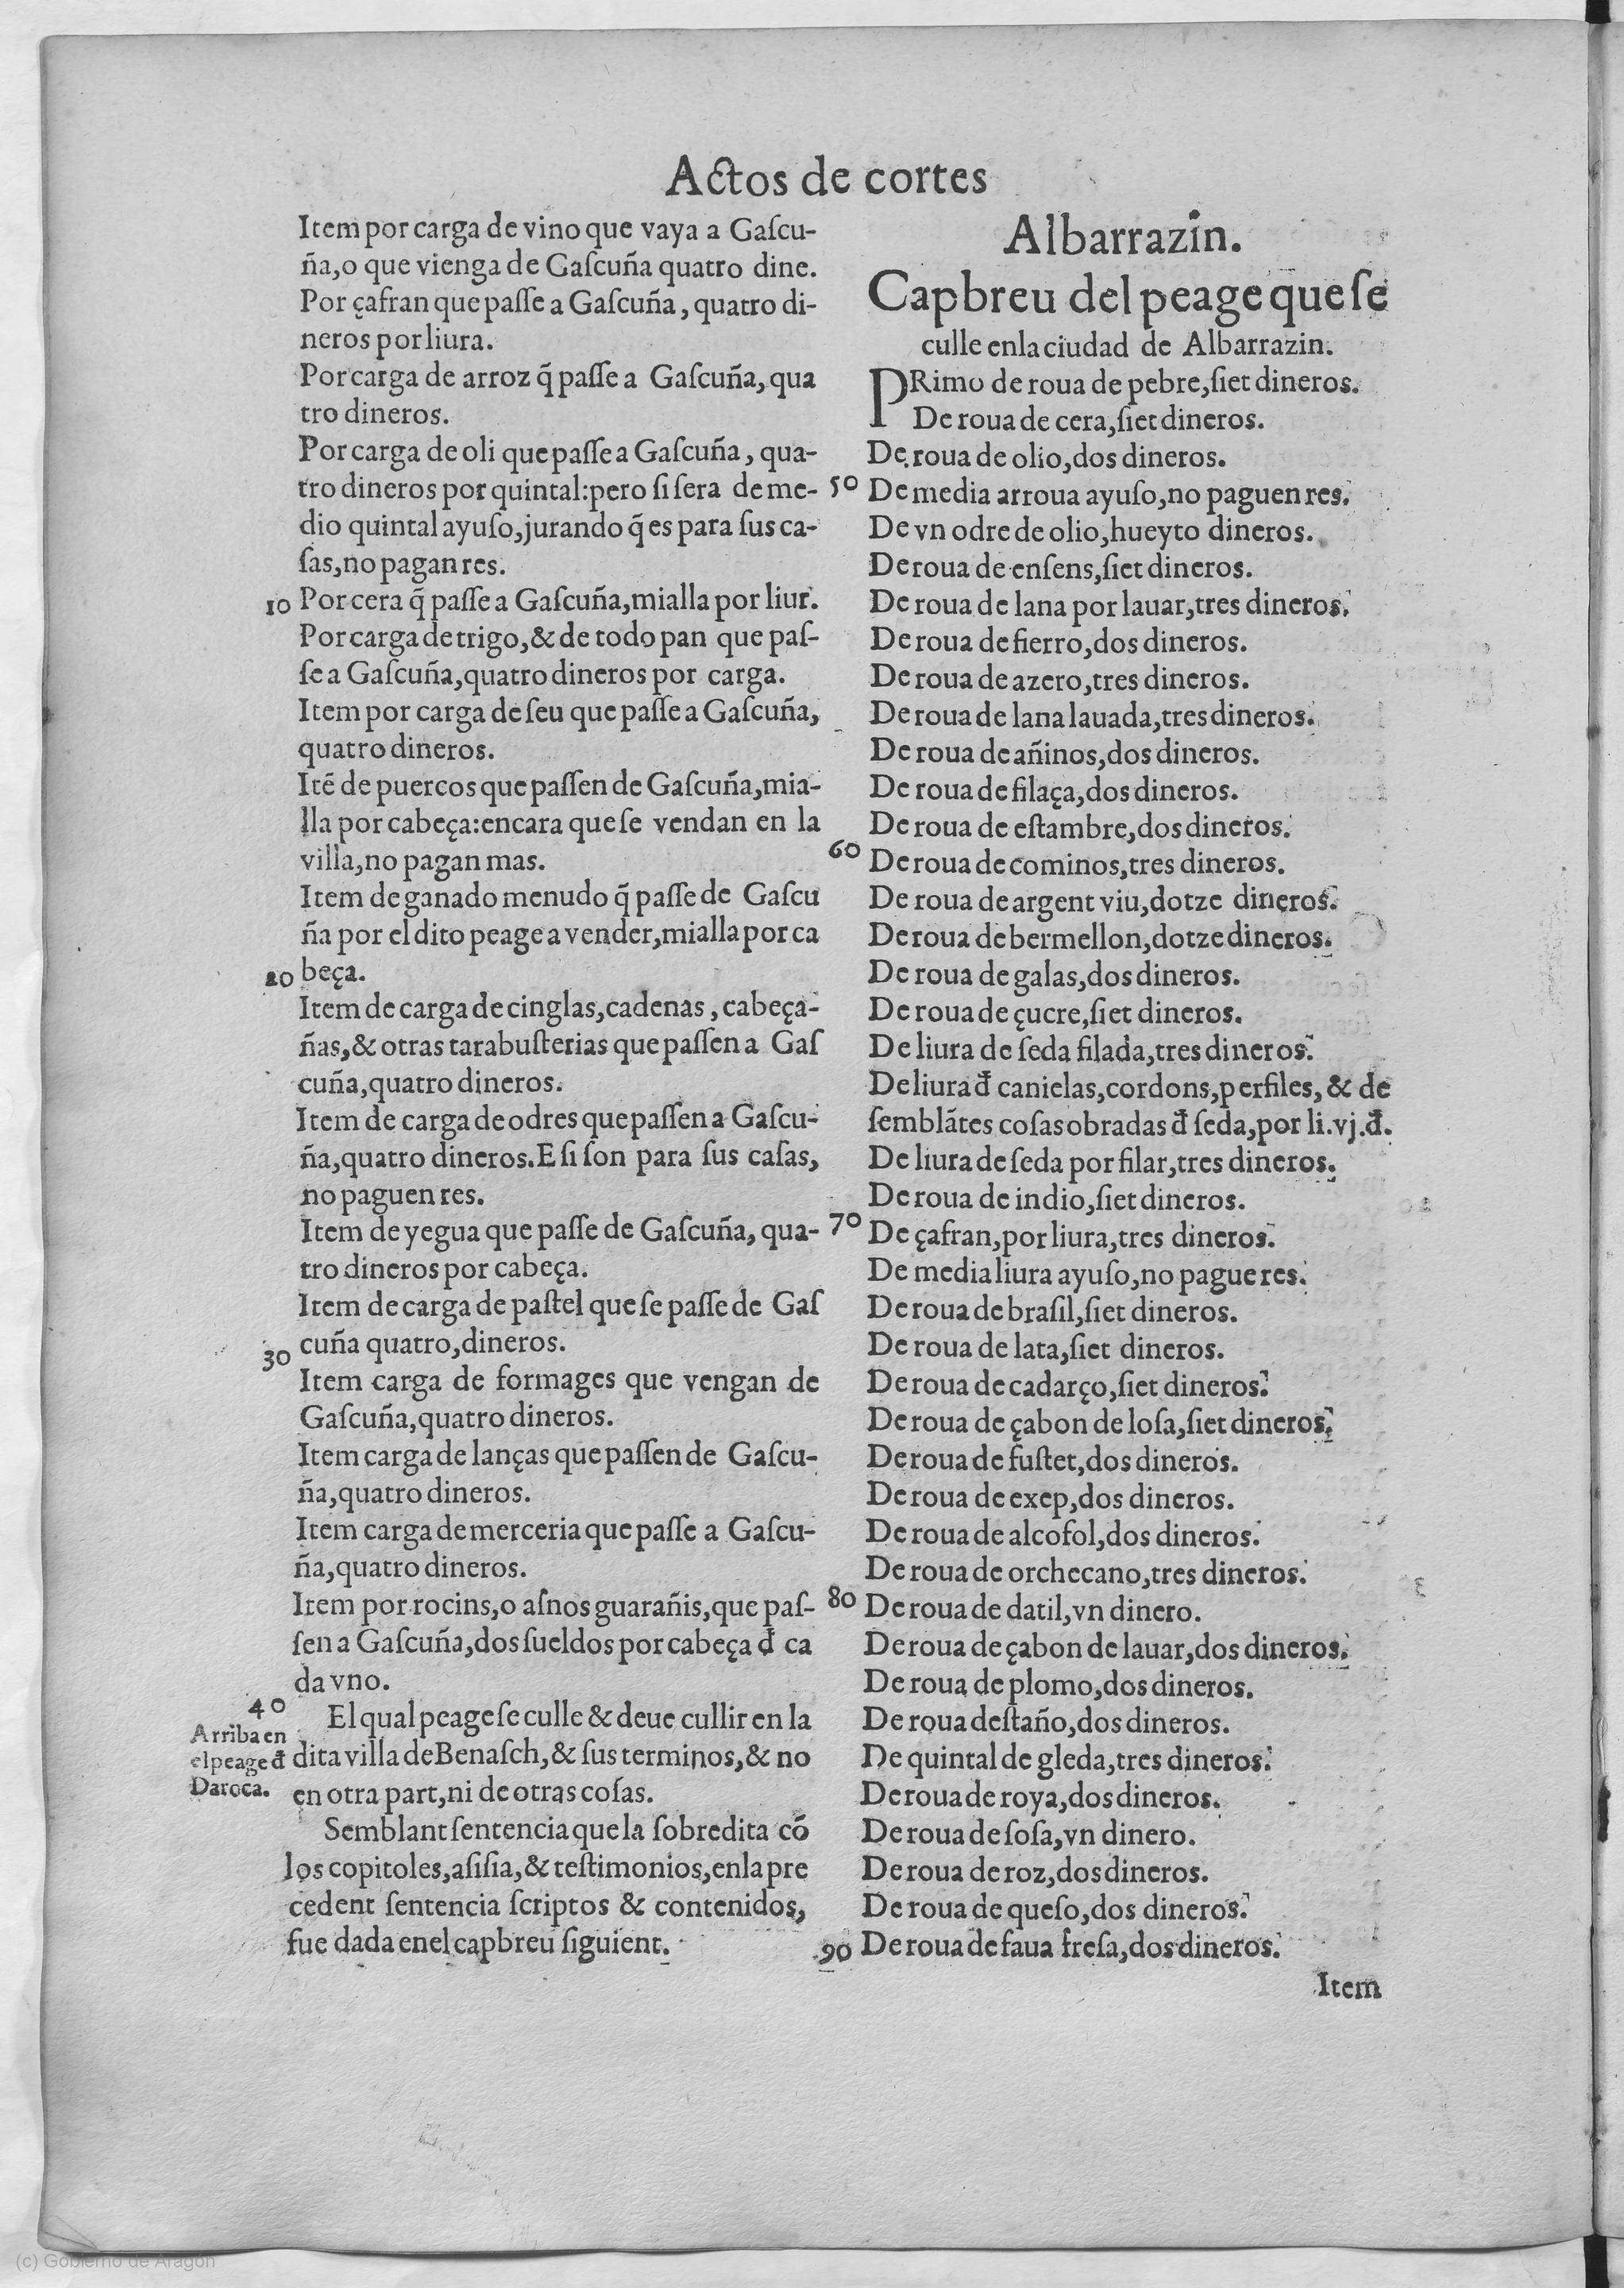 Actos de cortes
Item por carga de vino que vaya a Gaſcu-
ña,o que vienga de Gaſcuña quatro dine.
Por çafran que paſſe a Gaſcuña, quatro di-
neros por liura.
Por carga de arroz q̃ paſſe a Gaſcuña, qua
tro dineros.
Por carga de oli que paſſe a Gaſcuña, qua-
tro dineros por quintal:pero ſi ſera de me-
dio quintal ayuſo,jurando q̃ es para ſus ca-
ſas,no pagan res.
10 Por cera q̃ paſſe a Gaſcuña,mialla por liur.
Por carga de trigo,& de todo pan que paſ-
ſe a Gaſcuña,quatro dineros por carga.
Item por carga de ſeu que paſſe a Gaſcuña,
quatro dineros.
Itē de puercos que paſſen de Gaſcuña,mia-
lla por cabeça:encara que ſe vendan en la
villa,no pagan mas.
Item de ganado menudo q̃ paſſe de Gaſcu
ña por el dito peage a vender,mialla por ca
20 beça.
Item de carga de cinglas,cadenas, cabeça-
ñas,& otras tarabuſterias que paſſen a Gaſ
cuña,quatro dineros.
Item de carga de odres que paſſen a Gaſcu-
ña,quatro dineros.E ſi ſon para ſus caſas,
no paguen res.
Item de yegua que paſſe de Gaſcuña, qua-
tro dineros por cabeça.
Item de carga de paſtel que ſe paſſe de Gaſ
30 cuña quatro,dineros.
Item carga de formages que vengan de
Gaſcuña,quatro dineros.
Item carga de lanças que paſſen de Gaſcu-
ña,quatro dineros.
Item carga de merceria que paſſe a Gaſcu-
ña,quatro dineros.
Item por rocins,o aſnos guarañis,que paſ-
ſen a Gaſcuña,dos ſueldos por cabeça đ ca
da vno.
40 El qual peage ſe culle & deue cullir en la
dita villa de Benaſch,& ſus terminos,& no
en otra part,ni de otras coſas.
Arriba en
el peage đ
Daroca.
Semblant ſentencia que la ſobredita cō
los copitoles,aſiſia,& teſtimonios,enla pre
cedent ſentencia ſcriptos & contenidos,
fue dada enel capbreu ſiguient.
Albarrazin.
Capbreu del peage que ſe
culle enla ciudad de Albarrazin.
PRimo de roua de pebre,ſiet dineros.
De roua de cera,ſiet dineros.
De roua de olio,dos dineros.
50 De media arroua ayuſo,no paguen res.
De vn odre de olio,hueyto dineros.
De roua de enſens,ſiet dineros.
De roua de lana por lauar,tres dineros.
De roua de fierro,dos dineros.
De roua de azero,tres dineros.
De roua de lana lauada,tres dineros.
De roua de añinos,dos dineros.
De roua de filaça,dos dineros.
De roua de eſtambre,dos dineros.
60 De roua de cominos,tres dineros.
De roua de argent viu,dotze dineros.
De roua de bermellon,dotze dineros.
De roua de galas,dos dineros.
De roua de çucre,ſiet dineros.
De liura de ſeda filada,tres dineros.
De liura đ canielas,cordons,perfiles, & de
ſemblātes coſas obradas đ ſeda,por li.vj.đ.
De liura de ſeda por filar,tres dineros.
De roua de indio,ſiet dineros.
70 De çafran,por liura,tres dineros.
De media liura ayuſo,no pague res.
De roua de braſil,ſiet dineros.
De roua de lata,ſiet dineros.
De roua de cadarço,ſiet dineros.
De roua de çabon de loſa,ſiet dineros.
De roua de fuſtet,dos dineros.
De roua de exep,dos dineros.
De roua de alcofol,dos dineros.
De roua de orchecano,tres dineros.
80 De roua de datil,vn dinero.
De roua de çabon de lauar,dos dineros.
De roua de plomo,dos dineros.
De roua deſtaño,dos dineros.
De quintal de gleda,tres dineros.
De roua de roya,dos dineros.
De roua de ſoſa,vn dinero.
De roua de roz,dos dineros.
De roua de queſo,dos dineros.
90 De roua de faua freſa,dos dineros.
Item
(c) Gobierno de Aragón